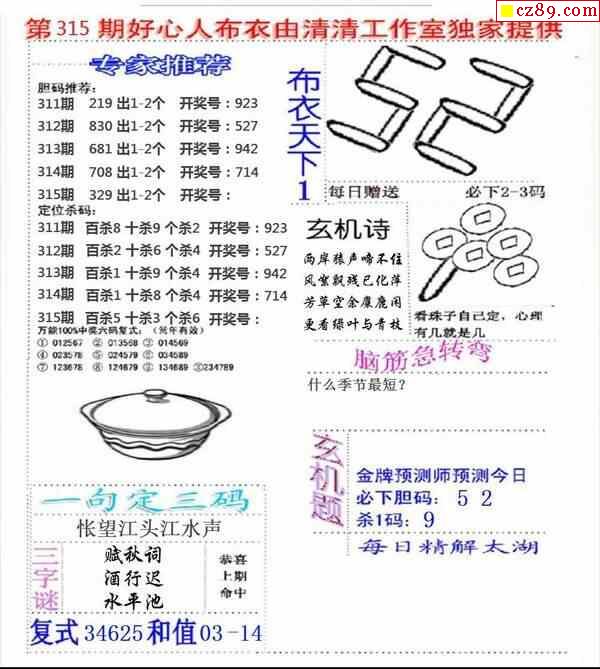 cz89.com
第315期好心人布衣由清清工作室独家提供
专家推荐
胆码推荐:
311期 219 出1-2个 开奖号:923
312期 830 出1-2个 开奖号:527
313期 681 出1-2个 开奖号:942
314期 708 出1-2个 开奖号:714
315期 329 出1-2个 开奖号:
定位杀码:
311期 百杀8 十杀9 个杀2 开奖号:923
312期 百杀2 十杀6 个杀4 开奖号:527
313期 百杀1 十杀9 个杀4 开奖号:942
314期 百杀1 十杀8 个杀4 开奖号:714
315期 百杀5 十杀3 个杀6 开奖号:
万能100%中奖六码复式:(常年有效)
① 012567 ② 013568 ③ 014569
④ 023578 ⑤ 024579 ⑥ 034589
⑦ 123678 ⑧ 124679 ⑨ 134689 ⑩234789
布衣天下1
52
每日赠送 必下2-3码
玄机诗
两岸猿声啼不住
风窗飘残已化萍
芳草空余麋鹿闲
更看绿叶与青枝
看珠子自己定,心理
有几就是几
脑筋急转弯
什么季节最短?
玄机题
金牌预测师预测今日
必下胆码: 5 2
杀1码: 9
每日精解太湖
一句定三码
怅望江头江水声
三字谜
赋秋词
酒行迟
水平池
恭喜
上期
命中
复式 34625和值03-14